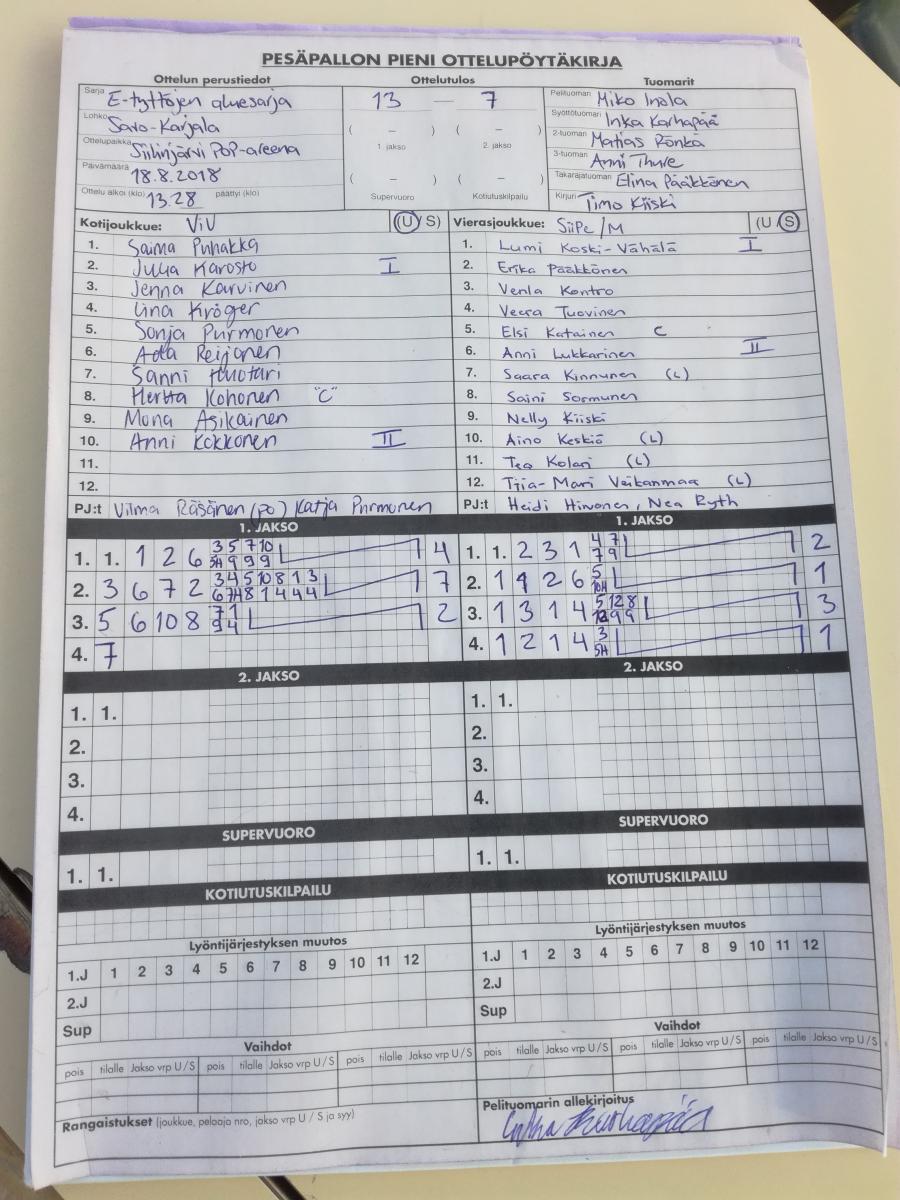 PESÄPALLON PIENI OTTELUPÖYTÄKIRJA
Ottelun perustiedot
Sarja E-tyttöjen aluesarja
Lohko Savo-Karjala
Ottelupaikka Siilinjärvi PoP-areena
Päivämäärä 18.8.2018
Ottelu alkoi (klo) 13.28 päättyi (klo)
Ottelutulos
13 — 7
( – ) ( – )
1. jakso 2. jakso
( – ) ( – )
Supervuoro Kotiutuskilpailu
Tuomarit
Pelituomari Miko Inola
Syöttötuomari Inka Karhapää
2-tuomari Matias Rönkä
3-tuomari Anni Thure
Takarajatuomari Elina Pääkkönen
Kirjuri Timo Kiiski
Kotijoukkue: ViV (U / S)
1. Saima Puhakka
2. Julia Karosto I
3. Jenna Karvinen
4. Lina Kröger
5. Sonja Purmonen
6. Ada Reijonen
7. Sanni Huotari
8. Hertta Kohonen "C"
9. Mona Asikainen
10. Anni Kokkonen II
11.
12.
PJ:t Vilma Räsänen (po) Katja Purmonen
Vierasjoukkue: SiiPe/M (U / S)
1. Lumi Koski-Vähälä I
2. Erika Pääkkönen
3. Venla Kontro
4. Veera Tuovinen
5. Elsi Katainen C
6. Anni Lukkarinen II
7. Saara Kinnunen (L)
8. Saini Sormunen
9. Nelly Kiiski
10. Aino Keskiö (L)
11. Tea Kolari (L)
12. Tiia-Mari Veikanmaa (L)
PJ:t Heidi Hirvonen, Nea Ryth
1. JAKSO
1. 1. 1 2 6 3 5 7 10 4
5H 9 9 9
2. 3 6 7 2 3 4 5 10 8 1 3 7
6 7H 8 1 4 4 4
3. 5 6 10 8 7 1 2
9 4
4. 7
1. JAKSO
1. 1. 2 3 1 4 7 2
7 9
2. 1 4 2 6 5 1
10H
3. 1 3 1 4 5 12 8 3
12 9 9
4. 1 2 1 4 3 1
5H
2. JAKSO
1. 1.
2.
3.
4.
2. JAKSO
1. 1.
2.
3.
4.
SUPERVUORO
1. 1.
SUPERVUORO
1. 1.
KOTIUTUSKILPAILU
KOTIUTUSKILPAILU
Lyöntijärjestyksen muutos
1.J 1 2 3 4 5 6 7 8 9 10 11 12
2.J
Sup
Lyöntijärjestyksen muutos
1.J 1 2 3 4 5 6 7 8 9 10 11 12
2.J
Sup
Vaihdot
pois tilalle Jakso vrp U / S pois tilalle Jakso vrp U / S pois tilalle Jakso vrp U / S
Vaihdot
pois tilalle Jakso vrp U / S pois tilalle Jakso vrp U / S pois tilalle Jakso vrp U / S
Rangaistukset (joukkue, pelaaja nro, jakso vrp U / S ja syy)
Pelituomarin allekirjoitus